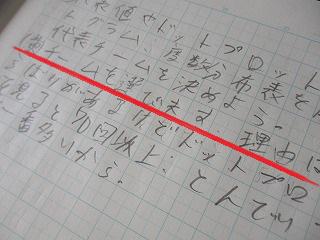 表値やドットプロット
トグラム、度数分布表を
代表チームを決めよう。
チームを選びます。理由は
ばらつきがあるけどドットプロ
を見ると70回以上、とんでい
一番多いから。